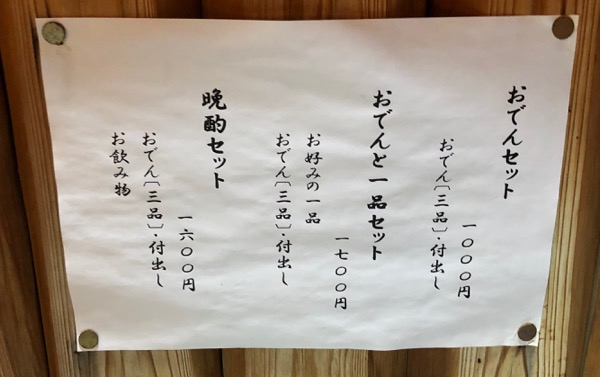 おでんセット
一〇〇〇円
おでん〔三品〕・付出し
おでんと一品セット
一七〇〇円
お好みの一品
おでん〔三品〕・付出し
晩酌セット
一六〇〇円
おでん〔三品〕・付出し
お飲み物